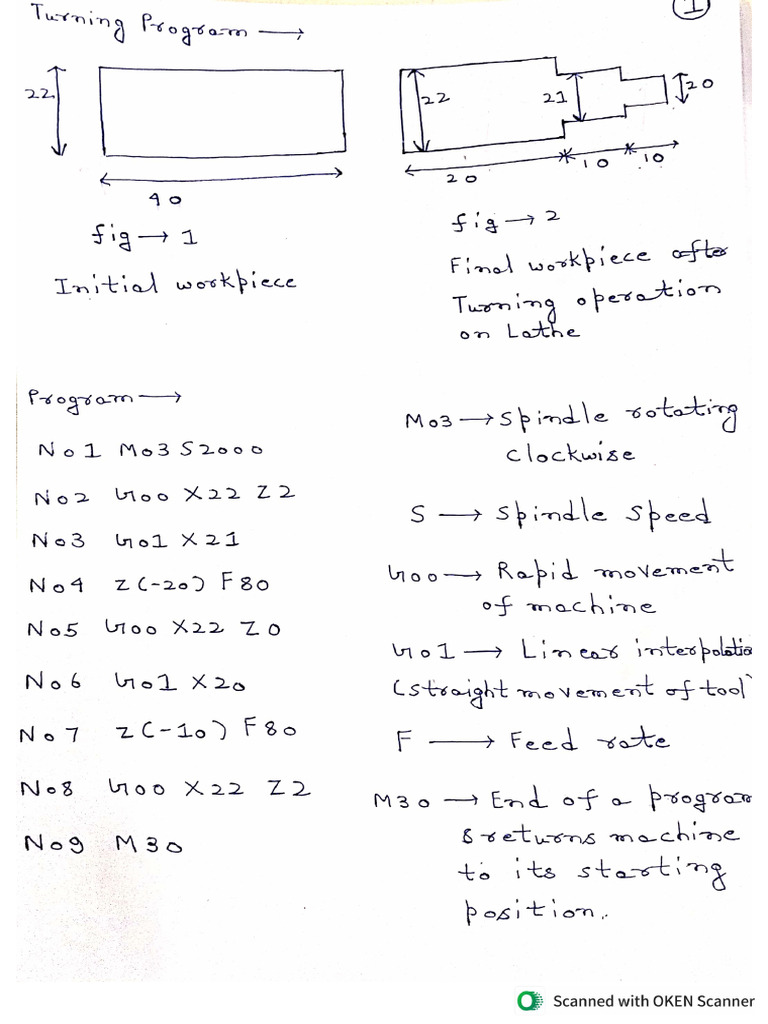 1
Turning Program →
22
40
fig → 1
Initial workpiece
22
21
20
20
10
10
fig → 2
Final workpiece after
Turning operation
on Lathe
Program →
N01 M03 S2000
N02 G00 X22 Z2
N03 G01 X21
N04 Z(-20) F80
N05 G00 X22 Z0
N06 G01 X20
N07 Z(-10) F80
N08 G00 X22 Z2
N09 M30
M03 → Spindle rotating
clockwise
S → Spindle speed
G00 → Rapid movement
of machine
G01 → Linear interpolatio
(straight movement of tool)
F → Feed rate
M30 → End of a program
& returns machine
to its starting
position.
Scanned with OKEN Scanner